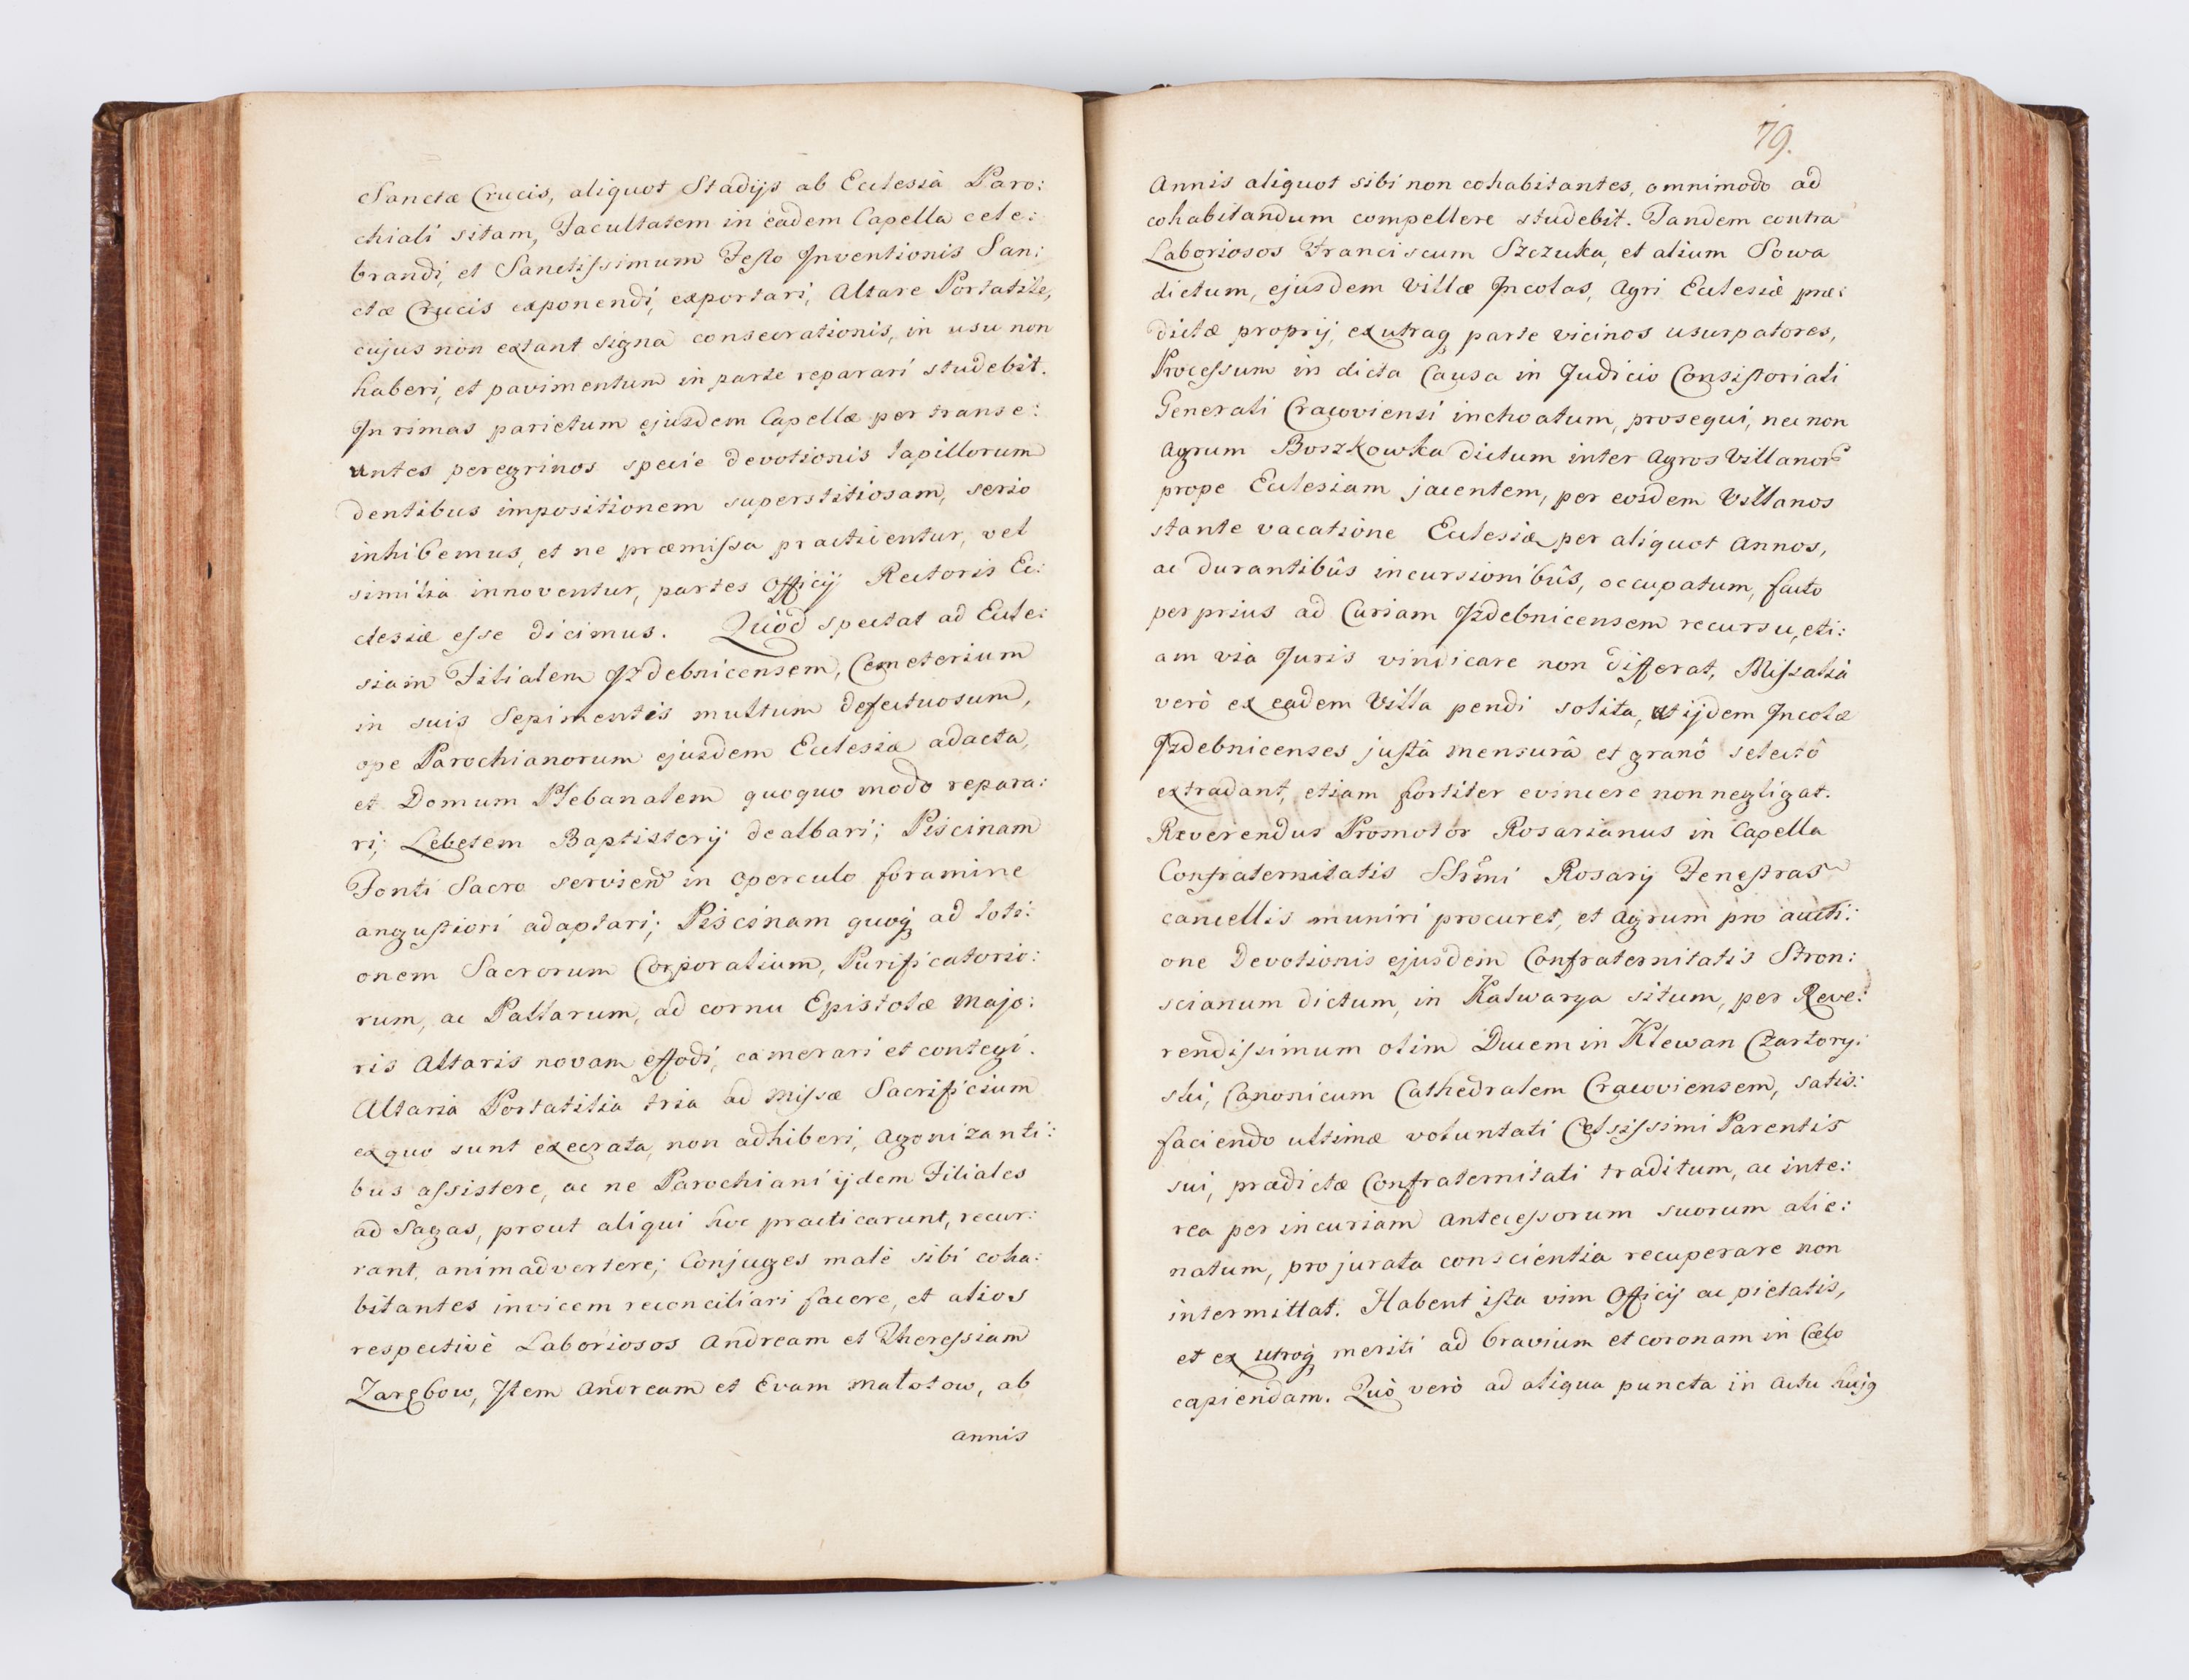 Sanctæ Crucis, aliquot Stadijs ab Ecclesiâ Paro:
chiali sitam, Facultatem in eâdem Capella cele:
brandi, et Sanctissimum Festo Inventionis San:
ctæ Crucis exponendi, exportari, Altare Portatile,
cujus non extant signa consecrationis, in usu non
haberi, et pavimentum in parte reparari studebit.
In rimas parietum ejusdem Capellæ per transe:
untes peregrinos specie devotionis lapillorum
dentibus impositionem superstitiosam, serio
inhibemus, et ne præmissa practicentur, vel
similia innoventur, partes Officij Rectoris Ec:
clesiæ esse dicimus. Quod spectat ad Eccle:
siam Filialem Izdebnicensem, Cemeterium
in suis Sepimentis multum defectuosum,
ope Parochianorum ejusdem Ecclesiæ adacta,
et Domum Plebanalem quoquo modo repara:
ri; Lebetem Baptisterij dealbari; Piscinam
Fonti Sacro servien in operculo foramine
angustiori adaptari; Piscinam quoq ad loti:
onem Sacrorum Corporalium, Purificatorio:
rum, ac Pallarum, ad cornu Epistolæ Majo:
ris Altaris novam effodi, camerari et contegi.
Altaria Portatilia tria ad Missæ Sacrificium
ex quo sunt execrata, non adhiberi, Agonizanti:
bus assistere, ac ne Parochiani ijdem Filiales
ad Sagas, prout aliqui hoc practicarunt, recur:
rant, animadvertere; Conjuges malè sibi coha:
bitantes invicem reconciliari facere, et alios
respectivè Laboriosos Andream et Theressiam
Zarębow, Item Andream et Evam Małotow, ab
annis
79.
Annis aliquot sibi non cohabitantes, omnimodo ad
cohabitandum compellere studebit. Tandem contra
Laboriosos Franciscum Szczuka, et alium Sowa
dictum, ejusdem Villæ Incolas, Agri Ecclesiæ præ:
dictæ proprij, ex utraq parte vicinos usurpatores,
Processum in dicta Causa in Judicio Consistoriali
Generali Cracoviensi inchoatum, prosequi, nec non
Agrum Boszkowka dictum inter Agros Villanor
prope Ecclesiam jacentem, per eosdem Villanos
stante vacatione Ecclesiæ per aliquot Annos,
ac durantibûs incursionibûs, occupatum, facto
per prius ad Curiam Izdebnicensem recursu, eti:
am via Juris vindicare non differat, Missalia
verò ex eadem Villa pendi solita, ut ijdem Incolæ
Izdebnicenses justâ mensurâ et granô selectô
extradant, etiam fortiter evincere non negligat.
Reverendus Promotor Rosarianus in Capella
Confraternitatis SSmi Rosarij Fenestras
cancellis muniri procuret, et agrum pro aucti:
one Devotionis ejusdem Confraternitatis Stron:
scianum dictum, in Kalwarya situm, per Reve:
rendissimum olim Ducem in Klewan Czartory:
ski, Canonicum Cathedralem Cracoviensem, satis:
faciendo ultimæ voluntati Celsissimi Parentis
sui, prædictæ Confraternitati traditum, ac inte:
rea per incuriam Antecessorum suorum alie:
natum, pro jurata conscientia recuperare non
intermittat. Habent ista vim Officij ac pietatis,
et ex utroq meriti ad bravium et coronam in Cælo
capiendam. Quò verò ad aliqua puncta in Actu hujq